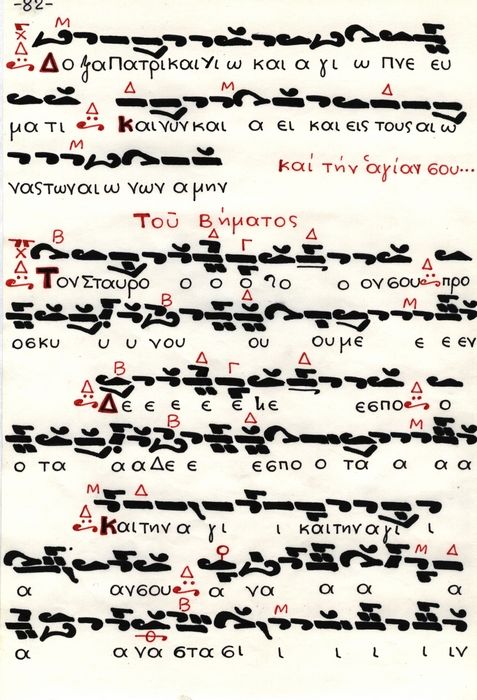 -82-
Δοξα Πατρι και Υι ω και α γι ω Πνε ευ
μα τι Και νυν και α ει και εις τους αι ω
νας των αι ω νων α μην
καί τήν ἁγίαν σου...
Τοῦ Βήματος
Τον Σταυρο ο ο ο ο ο ον σου προ
οσκυ υ υ νου ου ου με ε ε εν
Δε ε ε ε ε ε εσπο ο
ο τα α α Δε ε εσπο ο τα α α α
Και την α γι ι και την α γι ι
α αν σου α να α α α
α α να στα σι ι ι ι ι ιν